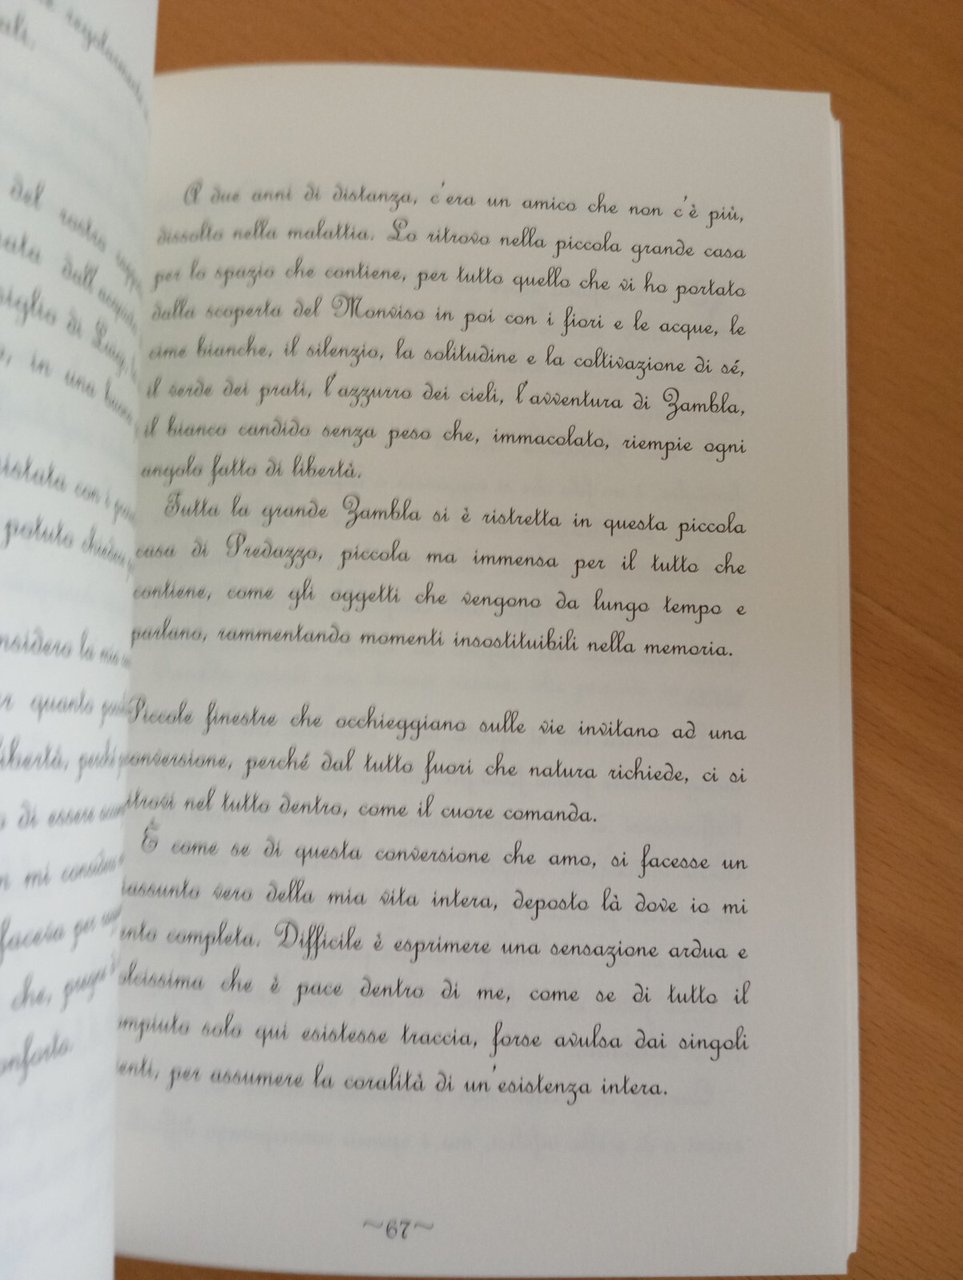 del nostro
dall'acquisto
di Luigi
in una
con i
potuto
considero la mia
quanto
libertà,
di essere
mi considero
faceva per
che,
conforto.
A due anni di distanza, c'era un amico che non c'è più,
dissolto nella malattia. Lo ritrovo nella piccola grande casa
per lo spazio che contiene, per tutto quello che vi ho portato
dalla scoperta del Monviso in poi con i fiori e le acque, le
cime bianche, il silenzio, la solitudine e la coltivazione di sé,
il verde dei prati, l'azzurro dei cieli, l'avventura di Zambla,
il bianco candido senza peso che, immacolato, riempie ogni
angolo fatto di libertà.
Tutta la grande Zambla si è ristretta in questa piccola
casa di Predazzo, piccola ma immensa per il tutto che
contiene, come gli oggetti che vengono da lungo tempo e
parlano, rammentando momenti insostituibili nella memoria.
Piccole finestre che occhieggiano sulle vie invitano ad una
conversione, perché dal tutto fuori che natura richiede, ci si
itrovi nel tutto dentro, come il cuore comanda.
È come se di questa conversione che amo, si facesse un
iassunto vero della mia vita intera, deposto là dove io mi
ento completa. Difficile è esprimere una sensazione ardua e
olcissima che è pace dentro di me, come se di tutto il
ompiuto solo qui esistesse traccia, forse avulsa dai singoli
enti, per assumere la coralità di un'esistenza intera.
~67~